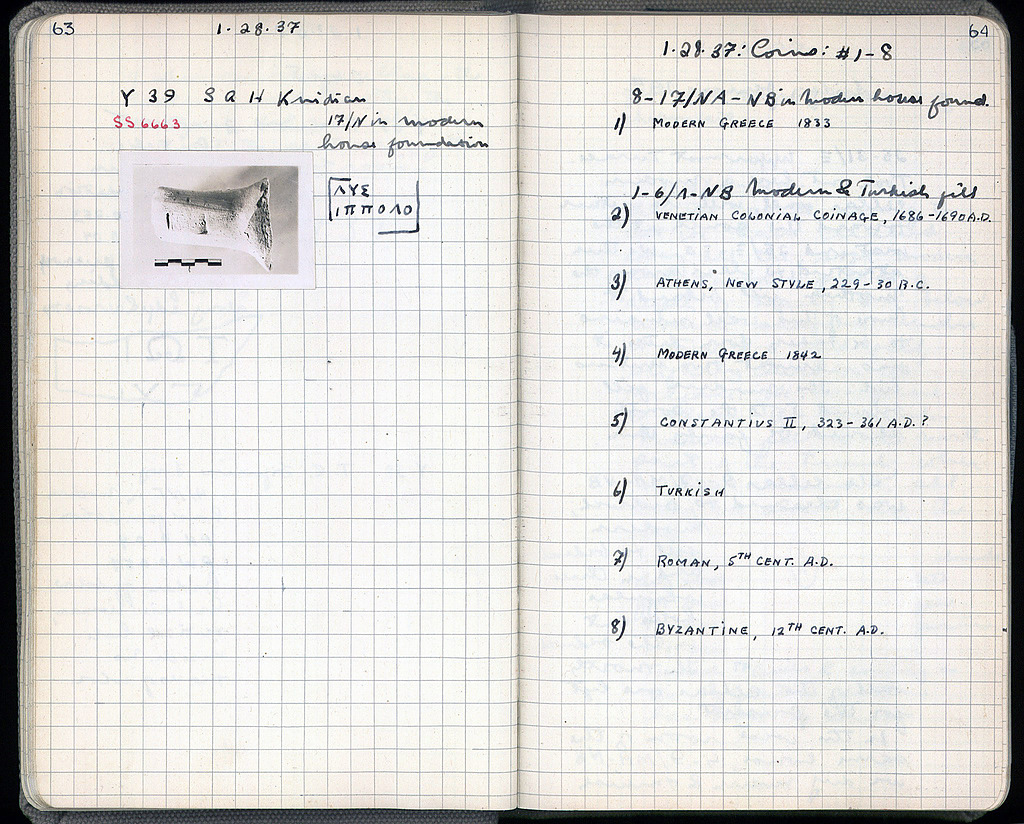 63
1·28·37
Y 39 S A H Knidian
SS 6663
17/N in modern
house foundation
ΛΥΣ
ΙΠΠΟΛΟ
64
1·28·37: Coins: #1-8
8-17/NA-NB in modern house found.
1) MODERN GREECE 1833
1-6/Λ-NB Modern & Turkish fill
2) VENETIAN COLONIAL COINAGE, 1686-1690 A.D.
3) ATHENS, NEW STYLE, 229-30 B.C.
4) MODERN GREECE 1842
5) CONSTANTIUS II, 323-361 A.D.?
6) TURKISH
7) ROMAN, 5TH CENT. A.D.
8) BYZANTINE, 12TH CENT. A.D.